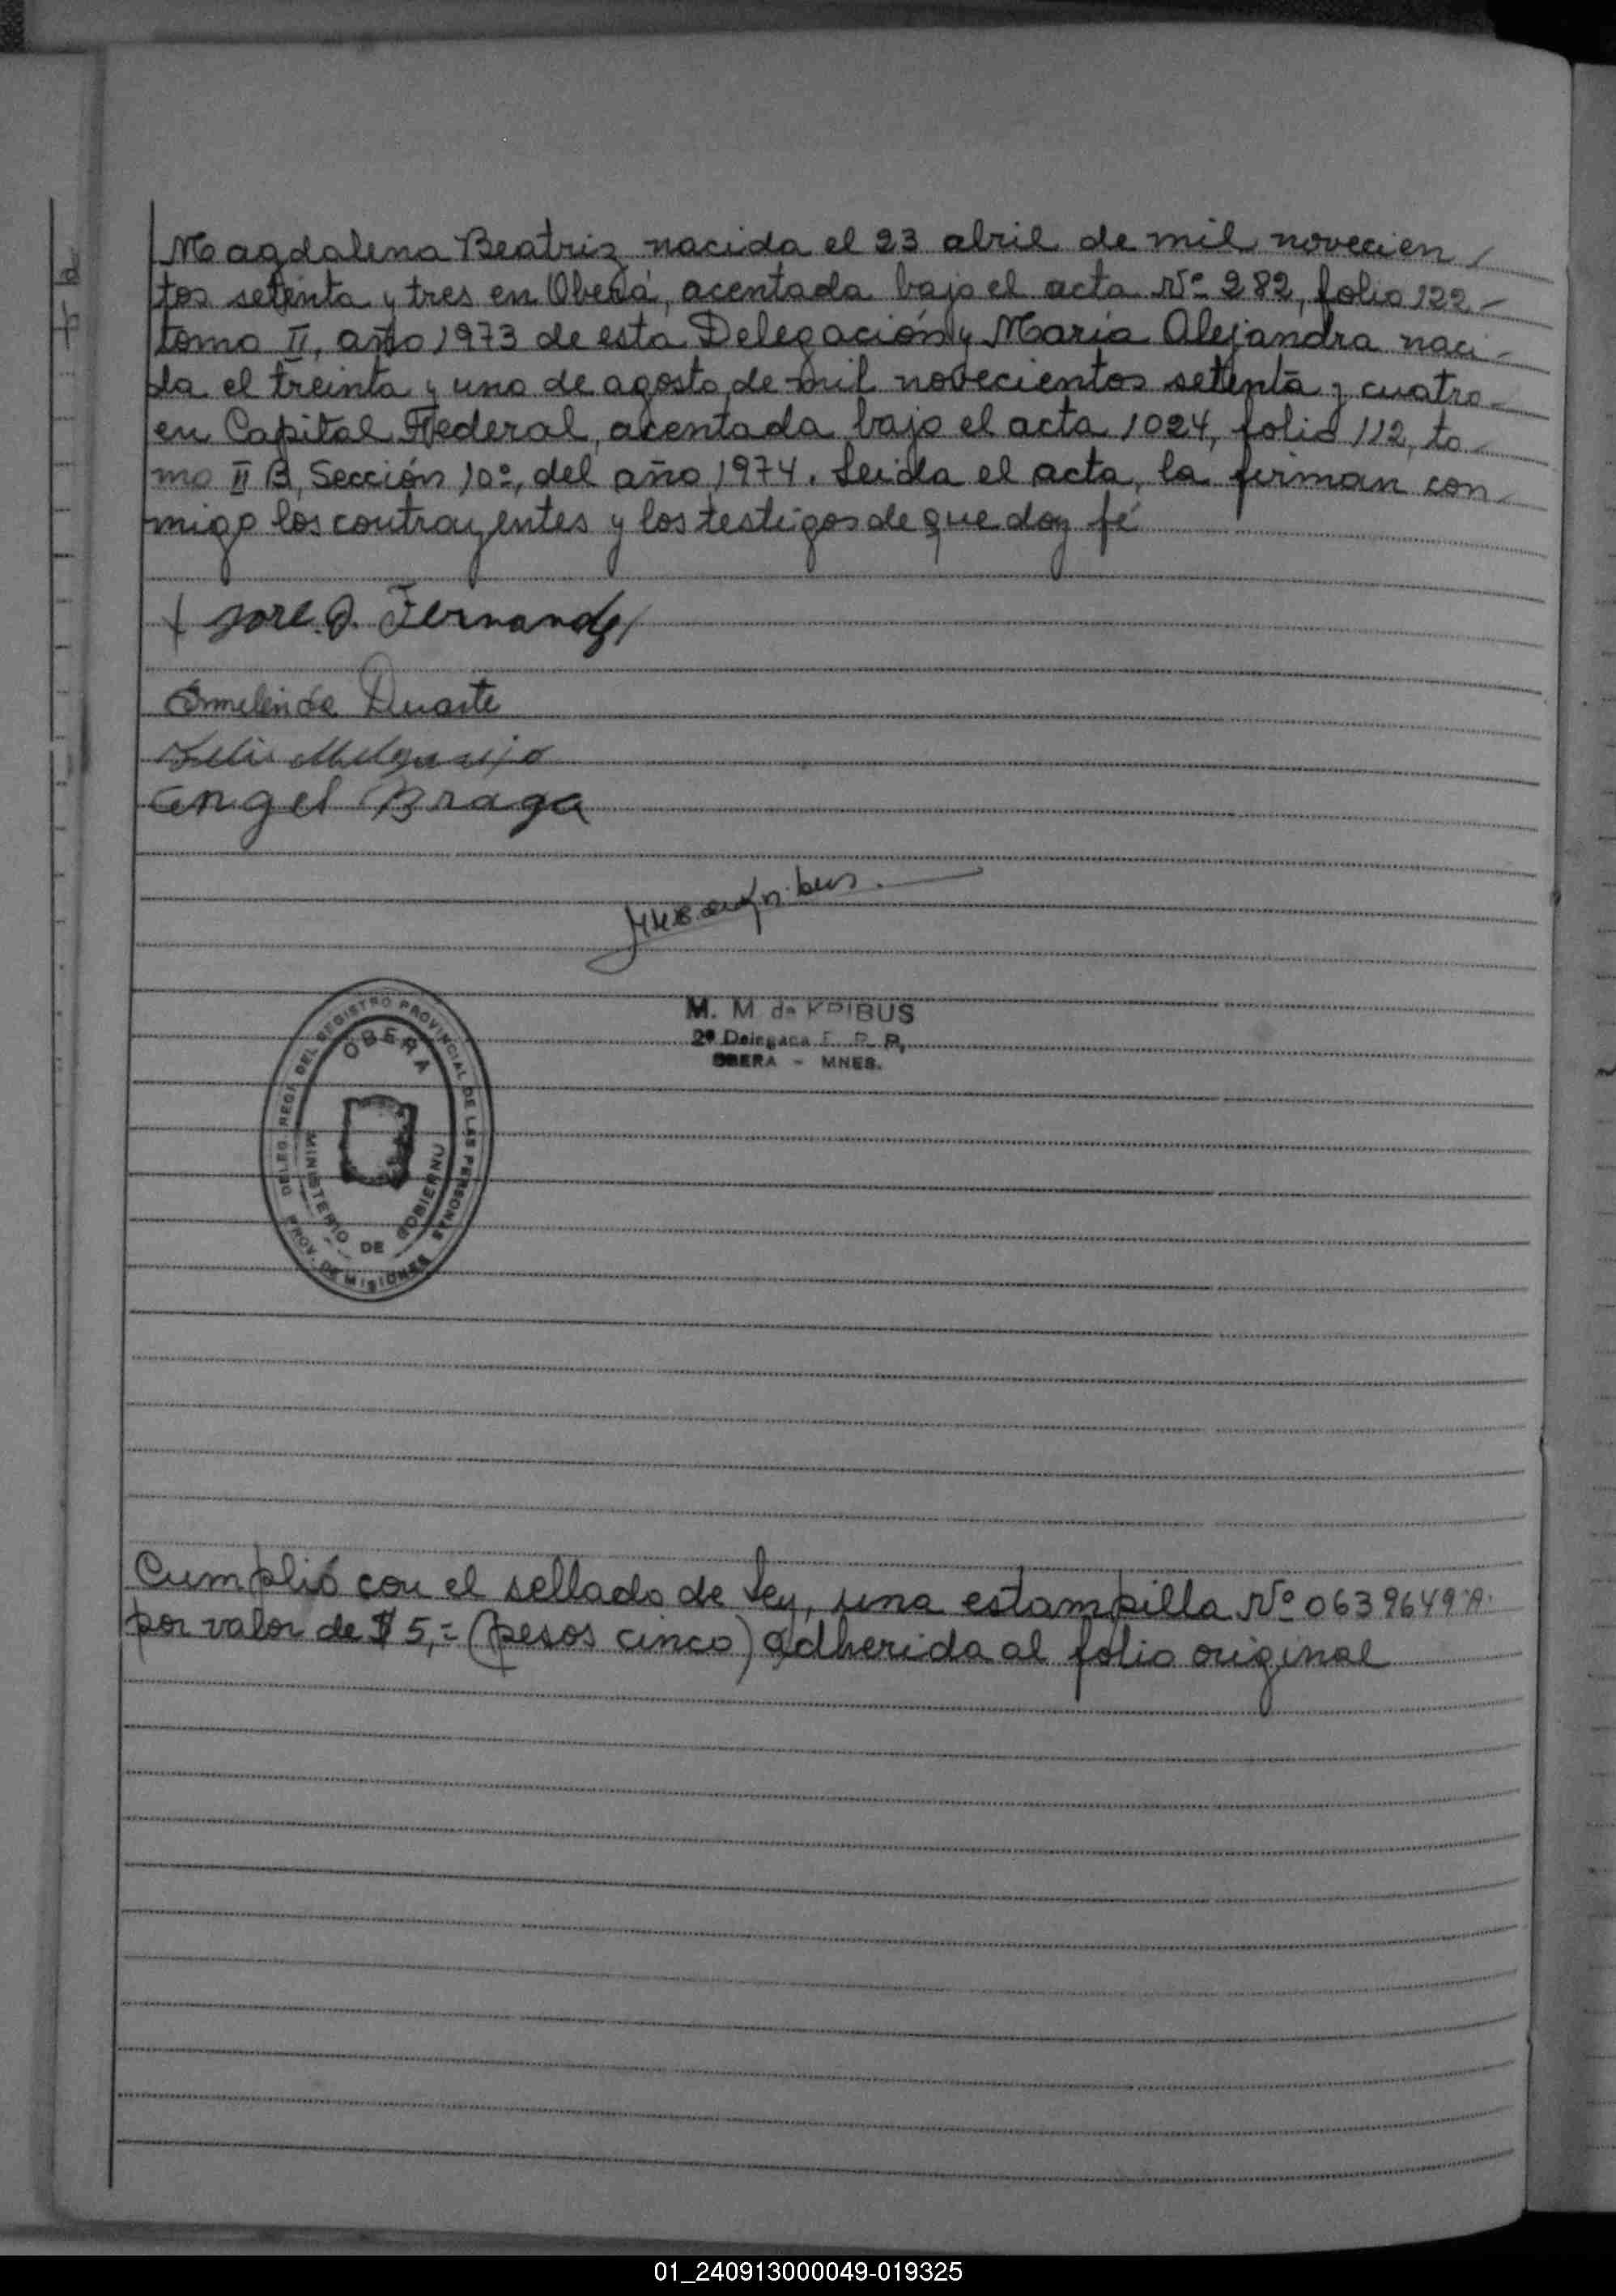 Magdalena Beatriz nacida el 23 abril de mil novecien
tos setenta y tres en Oberá, acentada bajo el acta Nº 282, folio 122
tomo II, año 1973 de esta Delegación y María Alejandra naci
da el treinta y uno de agosto de mil novecientos setenta y cuatro
en Capital Federal, acentada bajo el acta 1024, folio 112, to
mo II B, Sección 10º, del año 1974. Leida el acta, la firman con
migo los contrayentes y los testigos de que doy fé
Jose. D. Fernandez
Ermelinda Duarte
Melgarejo
Angel Braga
M. M de KRIBUS
2ª Delegada R. P. P,
OBERA - MNES.
DELEG. REGI. DEL REGISTRO PROVINCIAL DE LAS PERSONAS
OBERA
MINISTERIO DE GOBIERNO
PROV. DE MISIONES
Cumplió con el sellado de Ley, una estampilla Nº 0639649 A.
por valor de $ 5,= (pesos cinco) adherida al folio original
01_240913000049-019325